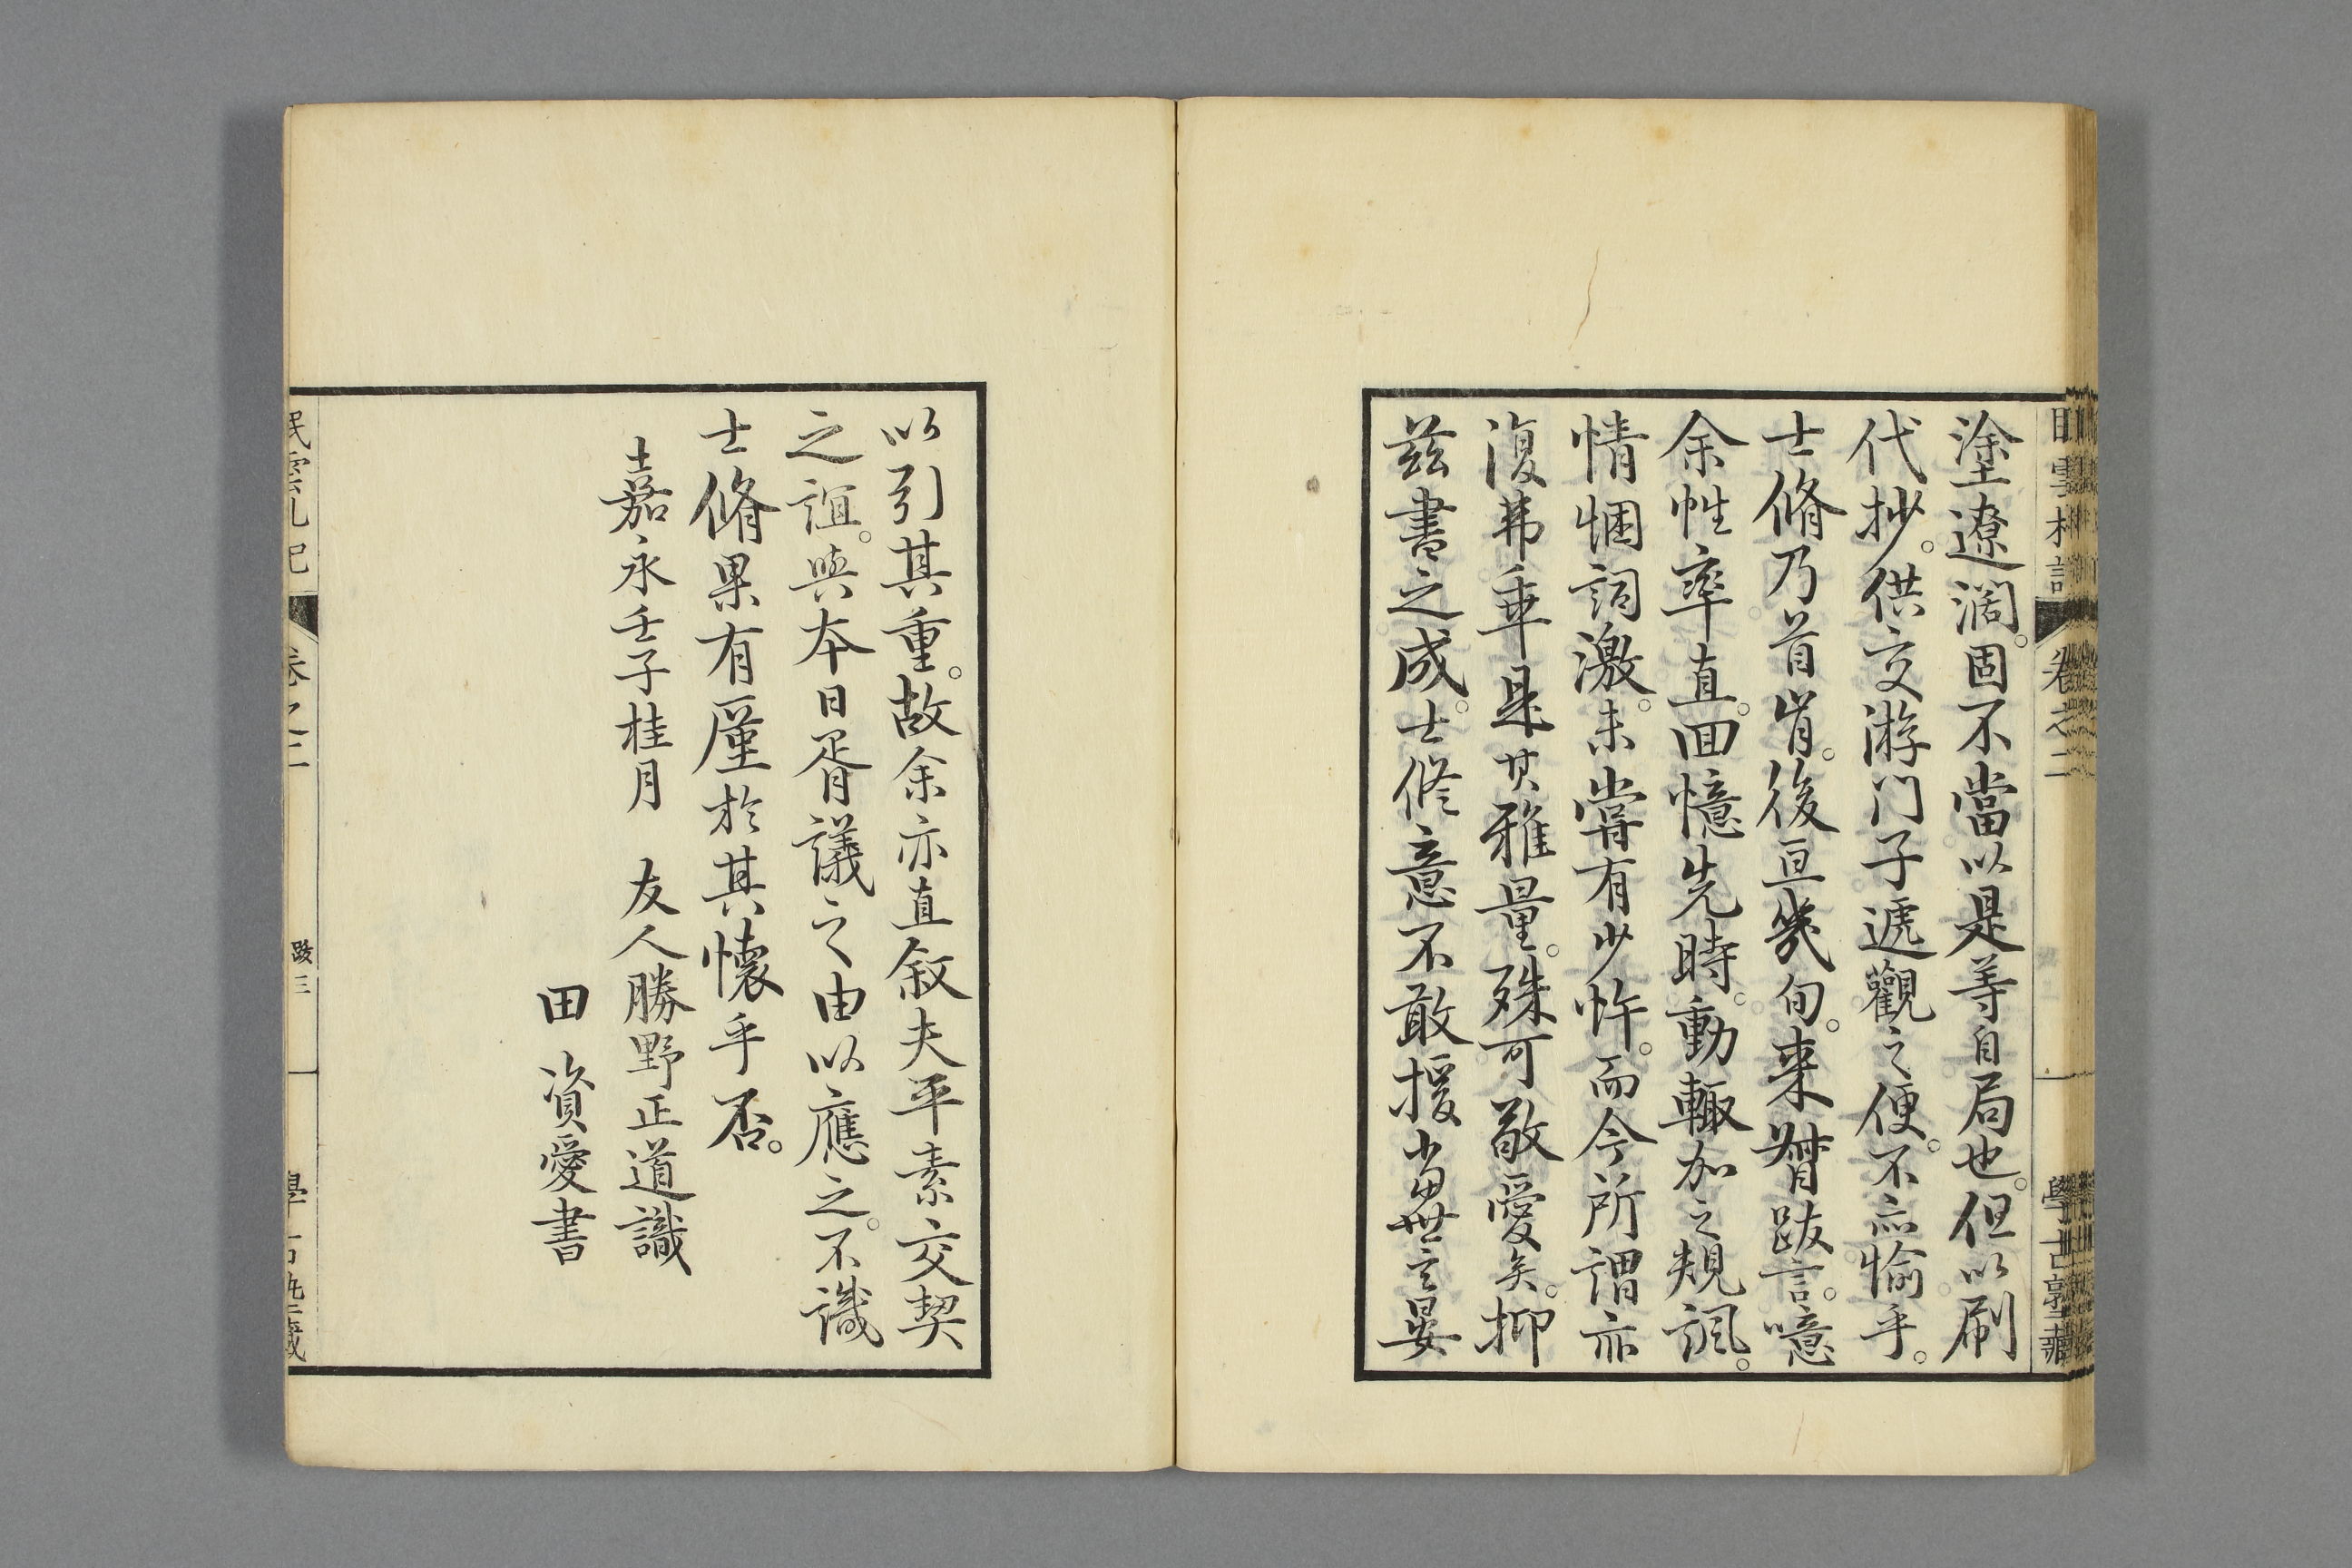 塗遼濶。固不當以是等自局也。但以刷
代抄。供交游門子遞觀之便。不亦愉乎。
士脩乃首肯。後亘幾旬。来督跋言。噫
余性率直。回憶先時。動輙加之規諷。
情悃詞激。未嘗有少忤。而今所謂亦
復弗乖。是其雅量。殊可敬愛矣。抑
茲書之成。士脩意不敢援當世言晏
以引其重。故余亦直叙夫平素交契
之誼。與本日胥議之由以應之。不識
士脩果有厪於其懷乎否。
嘉永壬子桂月 友人勝野正道識
田資愛書
卷之二
跋三